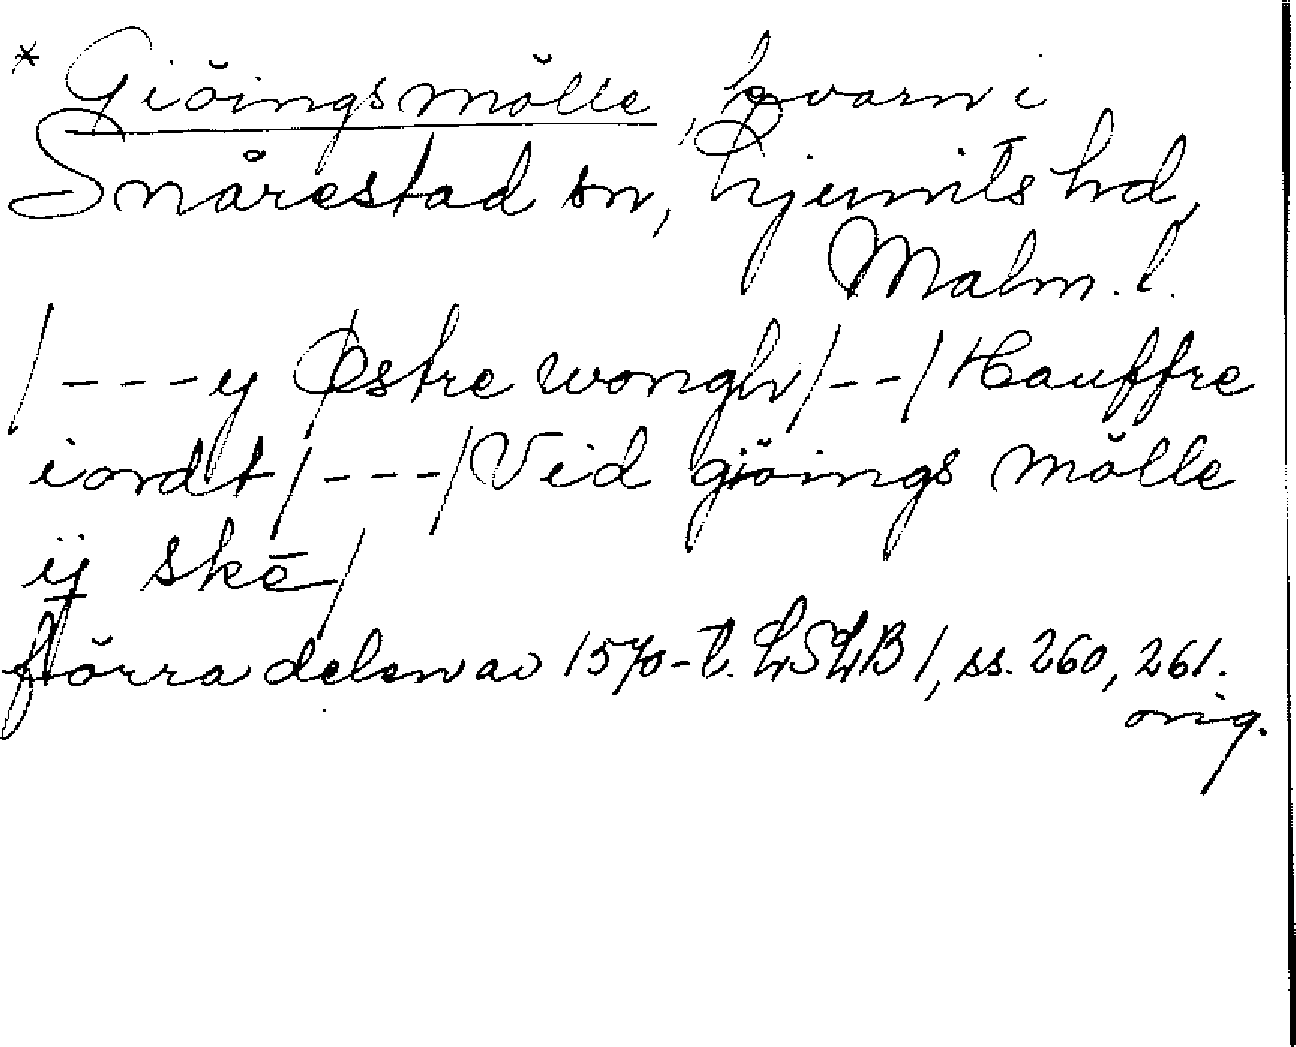 * Giöingsmölle, kvarn i
Snårestad sn, Ljunits hd,
Malm. l.
/---y Østre wongh/--/Hauffre
iordt/---/Vid gjöings mölle
ij skē/
förra delen av 1570-t. LSLB 1, ss. 260, 261.
orig.